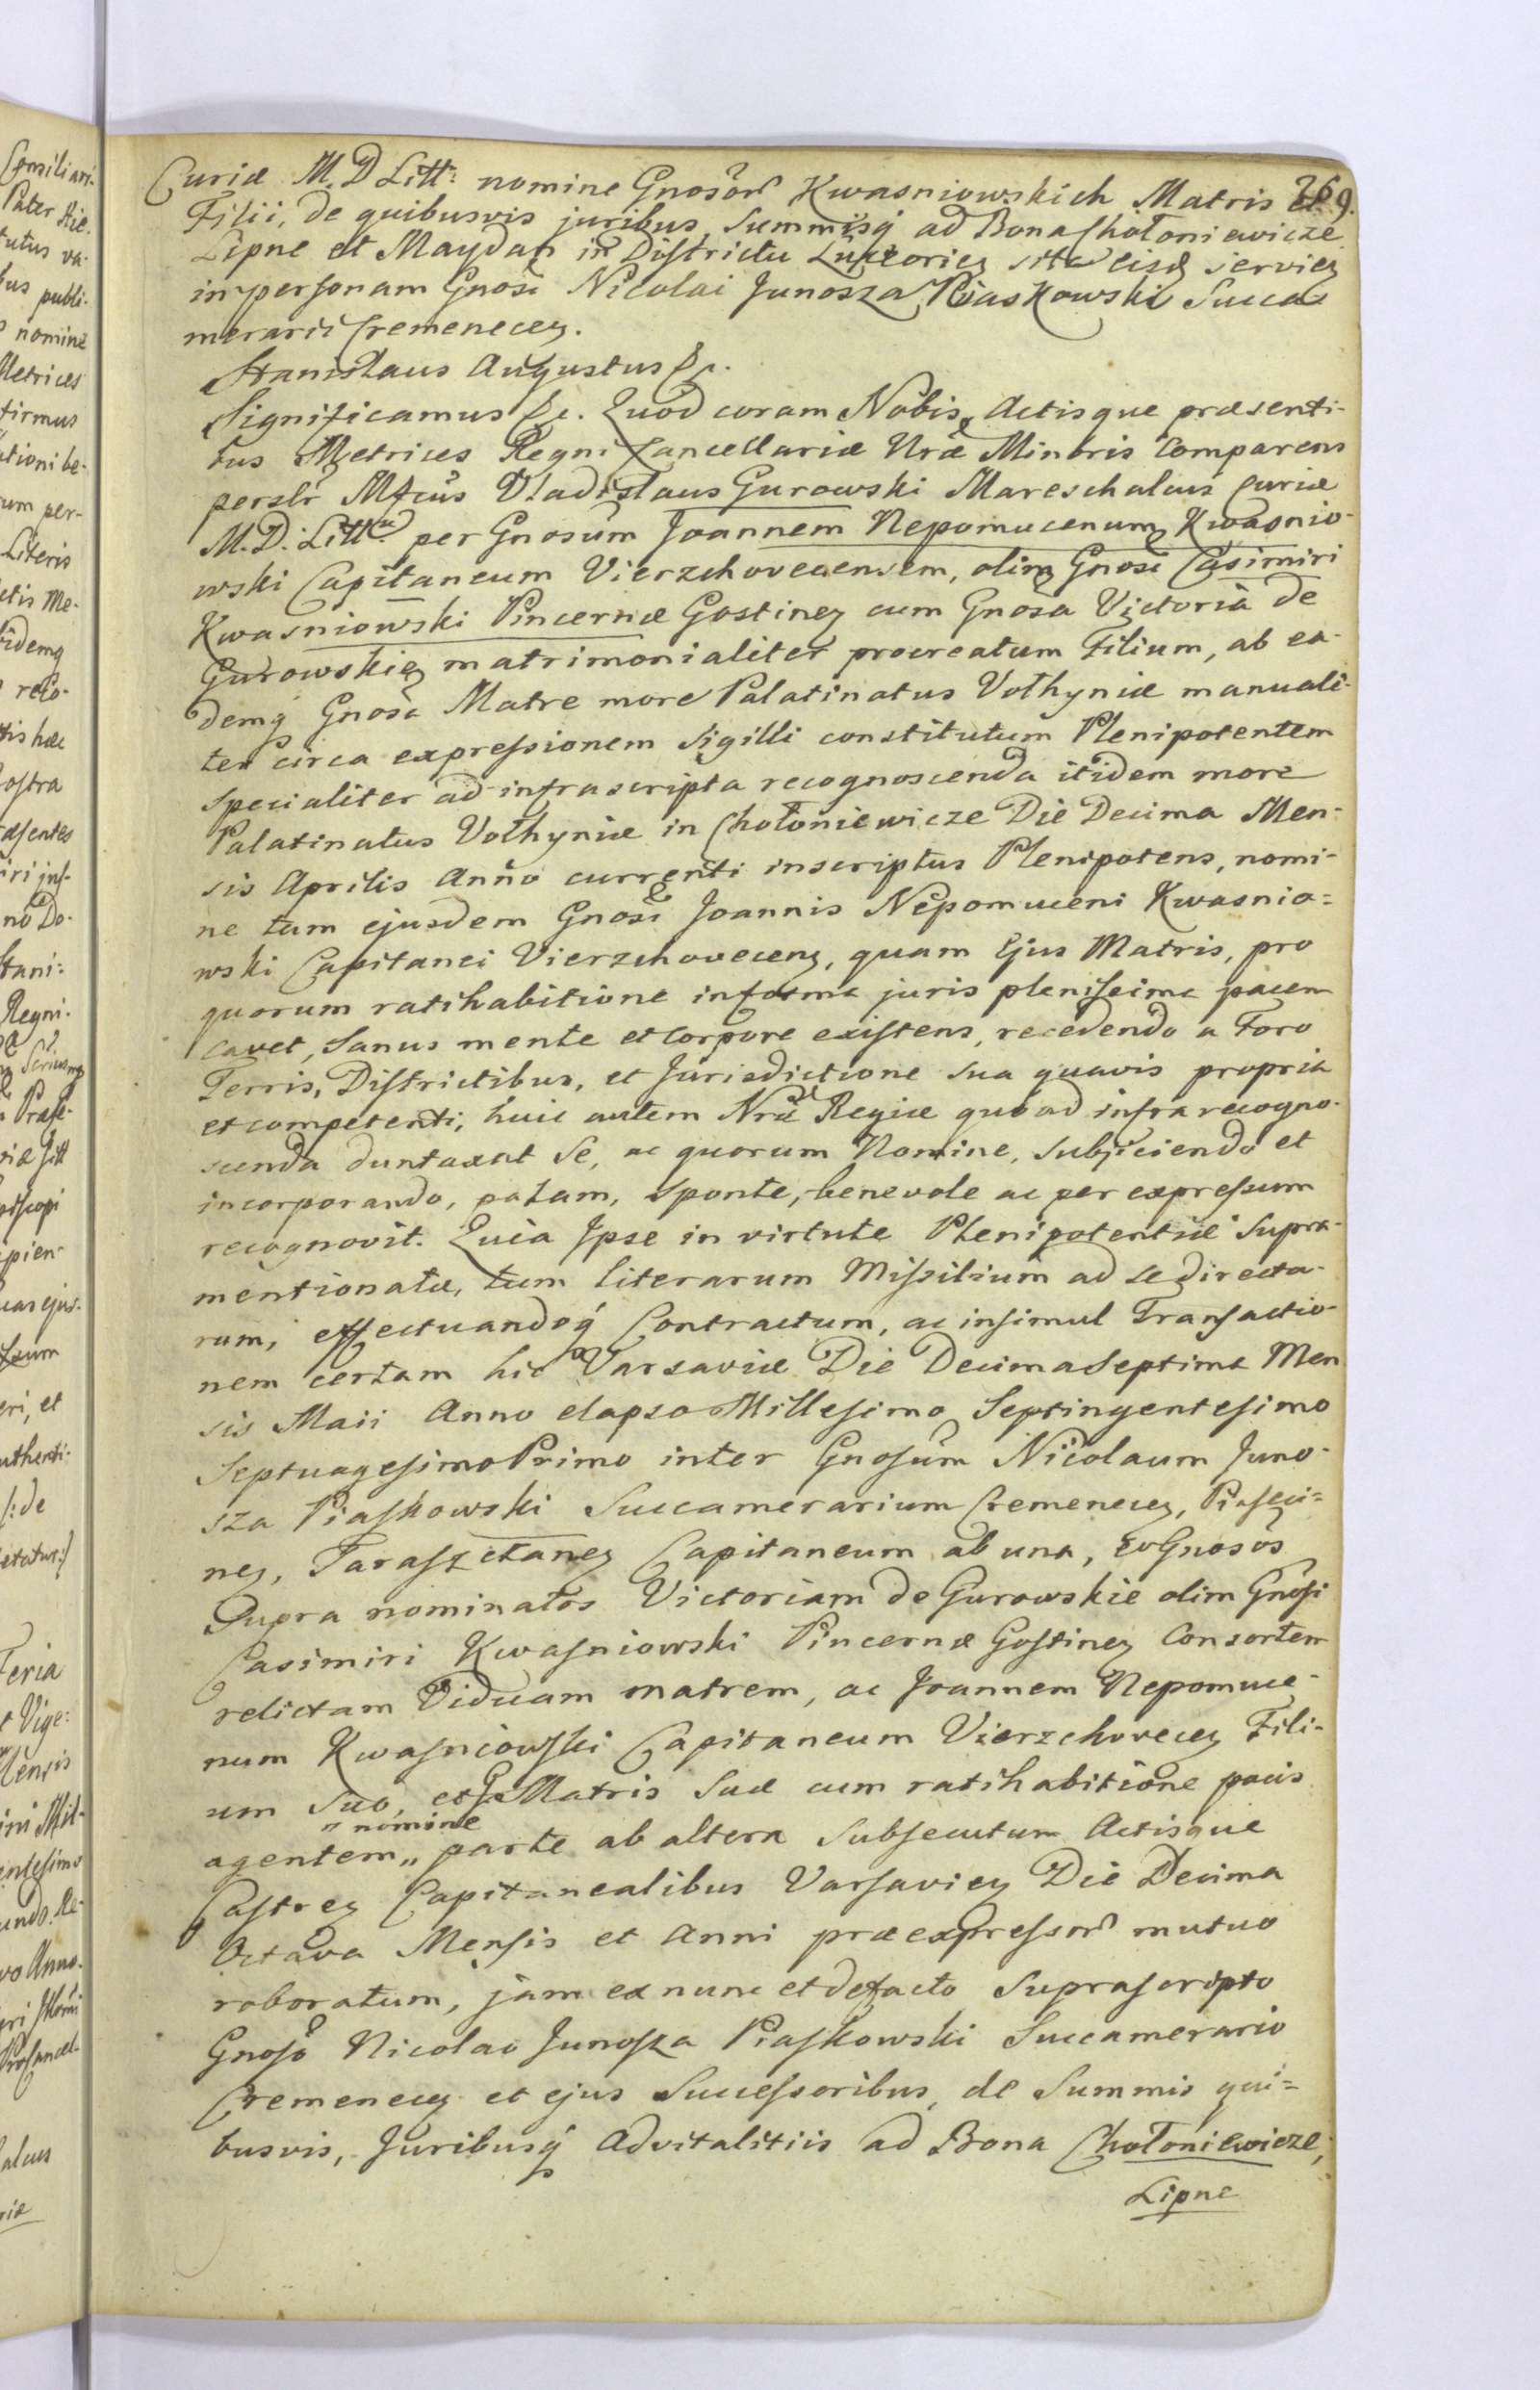 269.
Curiæ M. D Litt: nomine Gnosor Kwasniowskich Matris et
Filii, de quibusvis juribus, Summisq ad Bona Chołoniewicze
Lipne et Maydan in Districtu Luceorien sita eisq servien
in personam Gnosi Nicolai Junosza Piaskowski Succa
merarii Cremenecen.
Stanislaus Augustus &c.
Significamus &c. Quod coram Nobis, Actisque præsenti-
bus Metrices Regni Cancellariæ Nræ Minoris Comparens
perslr Mfcus Vladislaus Gurowski Mareschalcus Curiæ
M. D. Litt. per Gnosum Joannem Nepomucenum Kwasnio-
wski Capitaneum Vierzchovecensem, olim Gnosi Casimiri
Kwasniowski Pincernæ Gostinen cum Gnosa Victoria de
Gurowskie matrimonialiter procreatum Filium, ab ea-
demq Gnosa Matre more Palatinatus Volhyniæ manuali-
ter circa expressionem Sigilli constitutum Plenipotentem
specialiter ad infrascripta recognoscenda itidem more
Palatinatus Volhyniæ in Chołoniewicze Die Decima Men-
sis Aprilis Anno currenti inscriptus Plenipotens, nomi-
ne tam ejusdem Gnosi Joannis Nepomuceni Kwasnio=
wski Capitanei Vierzchovecen, quam Ejus Matris, pro
quorum ratihabitione in forma juris plenissima pacem
cavet, Sanus mente et Corpore existens, recedendo a Foro
Terris, Districtibus, et Jurisdictione sua quavis propria
et competenti, huic autem Nræ Regiæ quoad infra recogno-
scenda duntaxat Se, ac quorum Nomine, subjiciendo et
incorporando, palam, sponte, benevole ac per expressum
recognovit. Quia Ipse in virtute Plenipotentiæ Supra-
mentionatæ, tum literarum Missilium ad se directa-
rum, effectuandoq Contractum, ac insimul Transactio-
nem certam hic Varsaviæ Die Decima Septima Men
sis Maii Anno elapso Millesimo Septingentesimo
Septuagesimo Primo inter Gnosum Nicolaum Juno-
sza Piaskowski Succamerarium Cremenecen, Piaseci=
nen, Taraszctanen Capitaneum ab una, et Gnosos
Supra nominatos Victoriam de Gurowskie olim Gnosi
Casimiri Kwasniowski Pincernæ Gostinen Consortem
relictam Viduam matrem, ac Joannem Nepomuce-
num Kwasniowski Capitaneum Vierzchovecen Fili-
um suo, et G Matris Suæ cum ratihabitione pacis
„ nomine
agentem „ parte ab altera subsecutum Actisque
Castren Capitanealibus Varsavien Die Decima
Octava Mensis et Anni præexpressor mutuo
roboratum, jam ex nunc et de facto Suprascripto
Gnoso Nicolao Junosza Piaskowski Succamerario
Cremenecen et ejus Successoribus, de Summis qui=
busvis, Juribusq Advitalitiis ad Bona Chołoniewicze,
Lipne